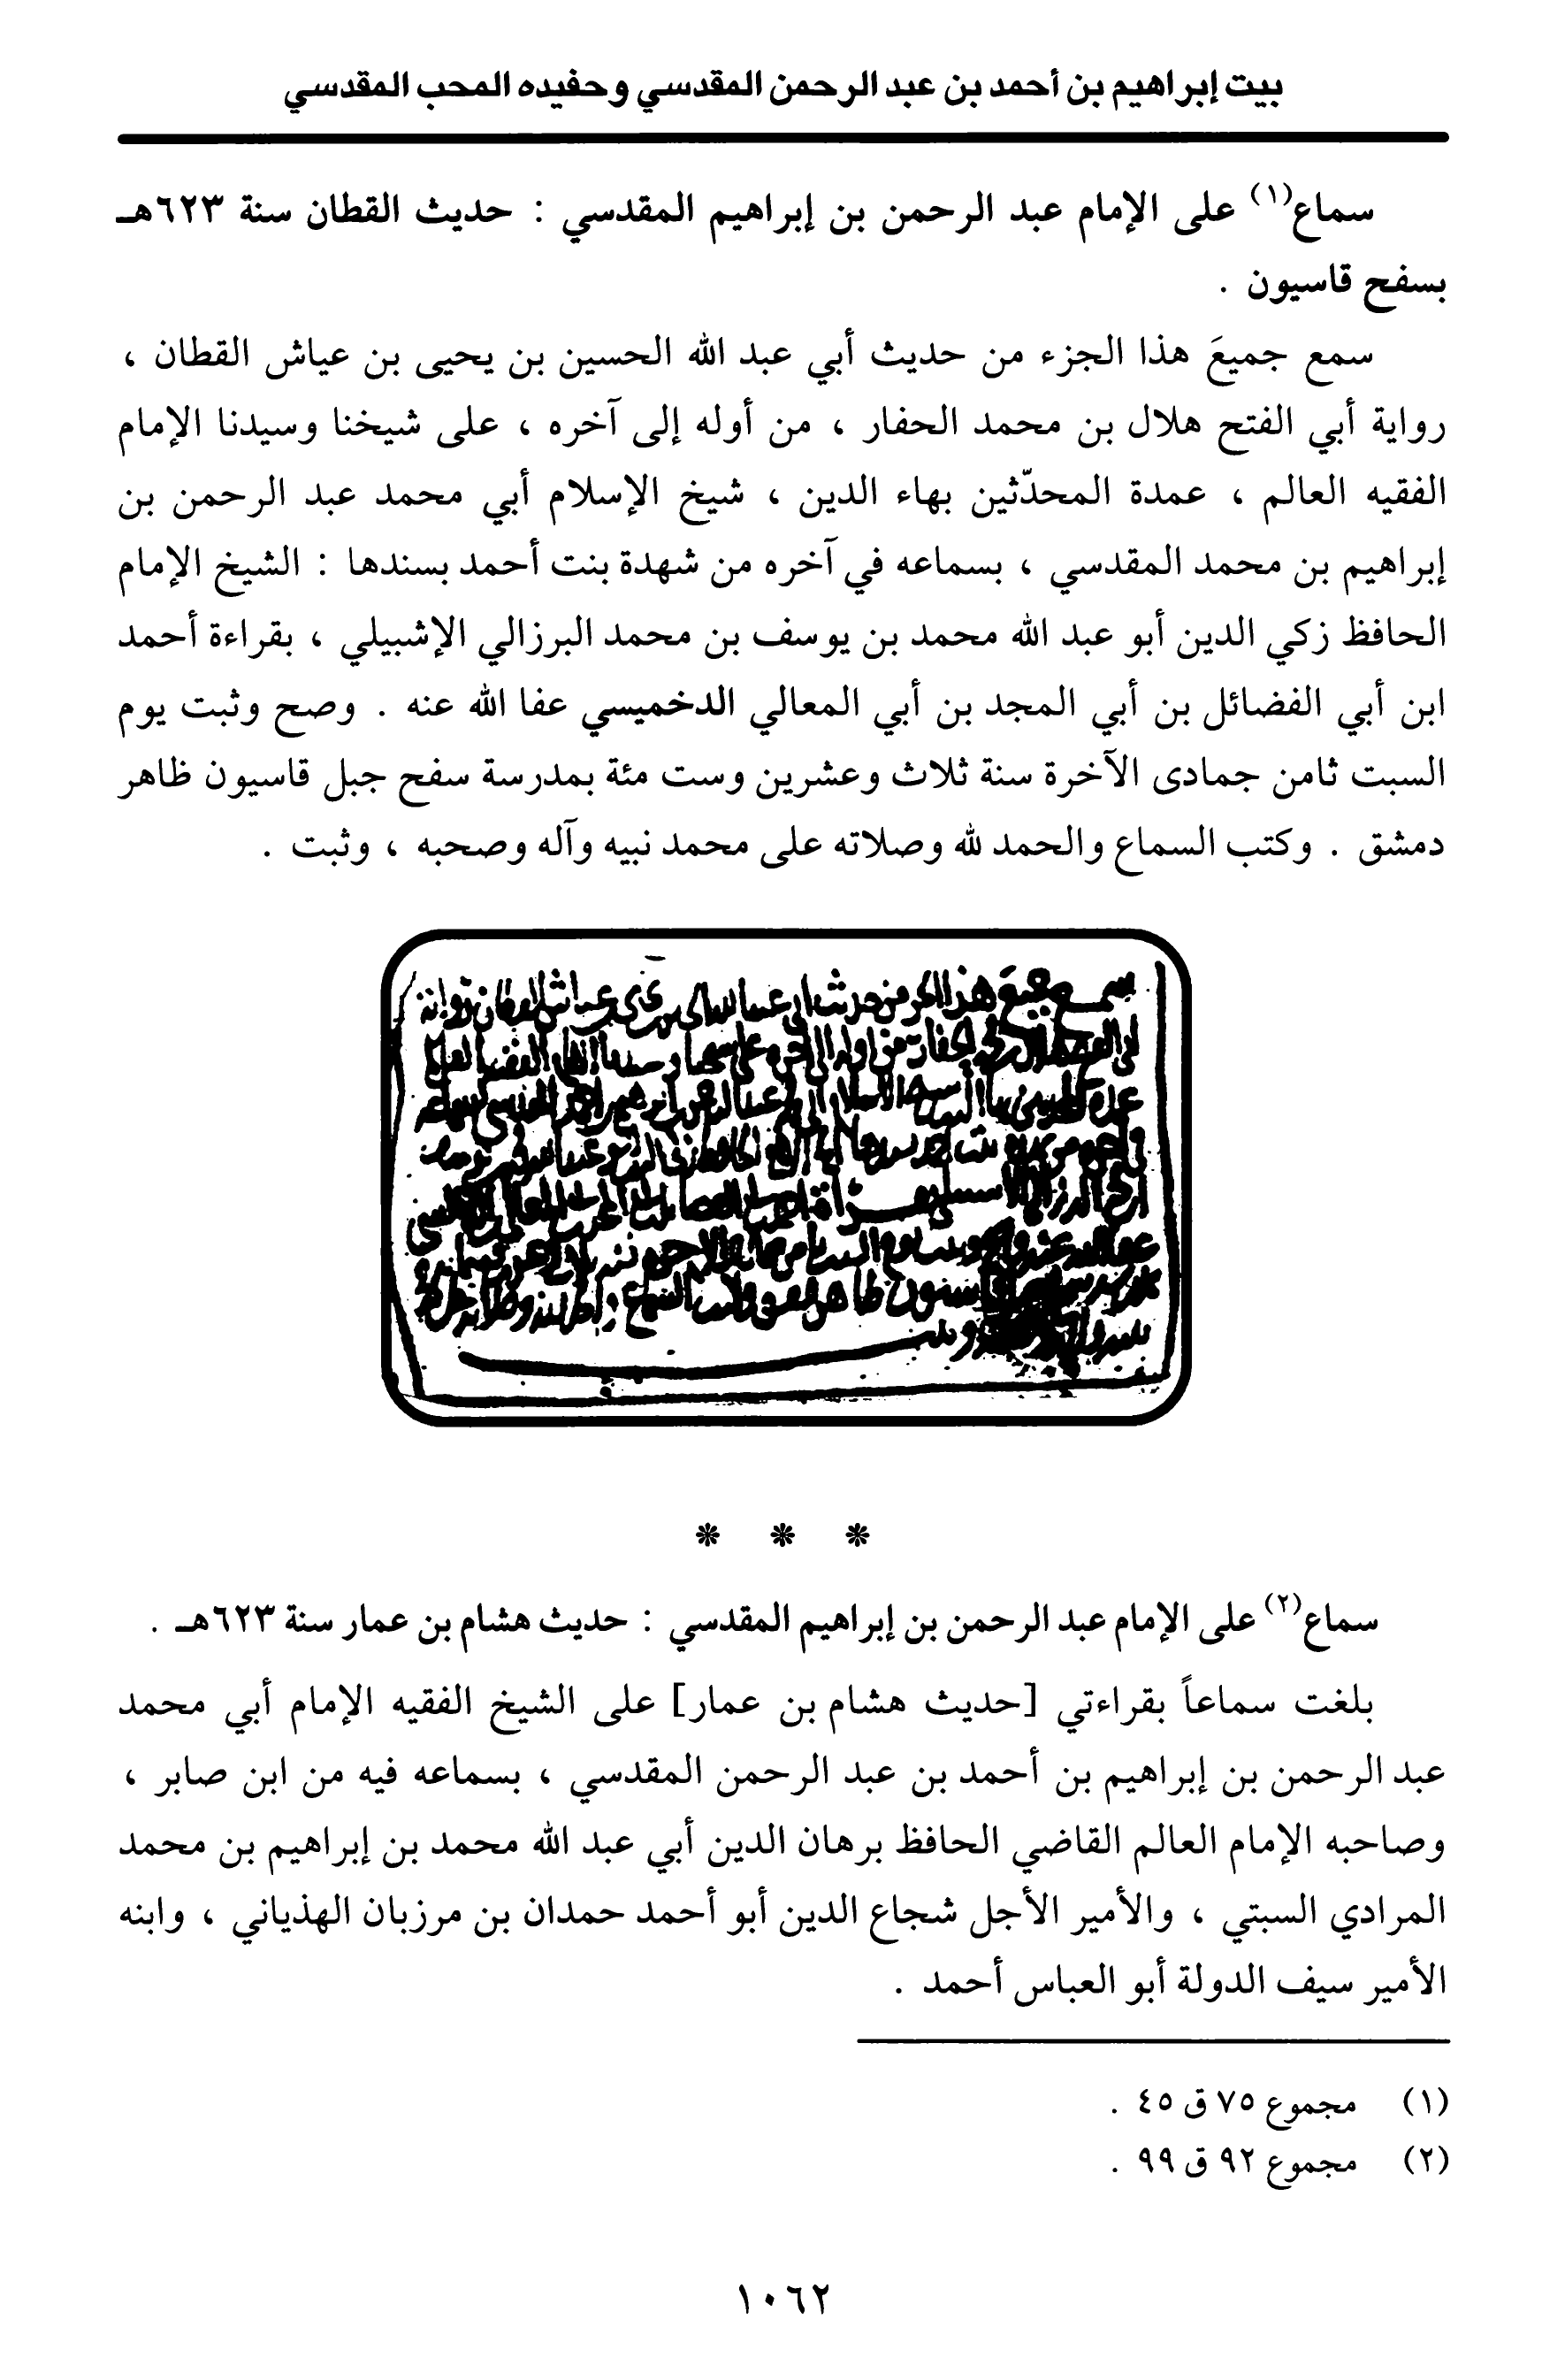 بيت إبراهيم بن أحمد بن عبد الرحمن المقدسي وحفيده المحب المقدسي
سماع(١) على الإمام عبد الرحمن بن إبراهيم المقدسي : حديث القطان سنة ٦٢٣هـ
بسفح قاسيون .
سمع جميعَ هذا الجزء من حديث أبي عبد الله الحسين بن يحيى بن عياش القطان ،
رواية أبي الفتح هلال بن محمد الحفار ، من أوله إلى آخره ، على شيخنا وسيدنا الإمام
الفقيه العالم ، عمدة المحدّثين بهاء الدين ، شيخ الإسلام أبي محمد عبد الرحمن بن
إبراهيم بن محمد المقدسي ، بسماعه في آخره من شهدة بنت أحمد بسندها : الشيخ الإمام
الحافظ زكي الدين أبو عبد الله محمد بن يوسف بن محمد البرزالي الإشبيلي ، بقراءة أحمد
ابن أبي الفضائل بن أبي المجد بن أبي المعالي الدخميسي عفا الله عنه . وصح وثبت يوم
السبت ثامن جمادى الآخرة سنة ثلاث وعشرين وست مئة بمدرسة سفح جبل قاسيون ظاهر
دمشق . وكتب السماع والحمد لله وصلاته على محمد نبيه وآله وصحبه ، وثبت .
* * *
سماع(٢) على الإمام عبد الرحمن بن إبراهيم المقدسي : حديث هشام بن عمار سنة ٦٢٣هـ .
بلغت سماعاً بقراءتي [حديث هشام بن عمار] على الشيخ الفقيه الإمام أبي محمد
عبد الرحمن بن إبراهيم بن أحمد بن عبد الرحمن المقدسي ، بسماعه فيه من ابن صابر ،
وصاحبه الإمام العالم القاضي الحافظ برهان الدين أبي عبد الله محمد بن إبراهيم بن محمد
المرادي السبتي ، والأمير الأجل شجاع الدين أبو أحمد حمدان بن مرزبان الهذياني ، وابنه
الأمير سيف الدولة أبو العباس أحمد .
(١) مجموع ٧٥ ق ٤٥ .
(٢) مجموع ٩٢ ق ٩٩ .
١٠٦٢